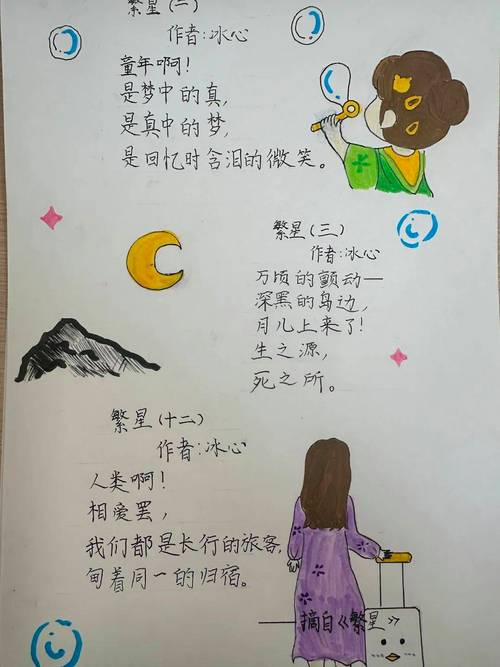 繁星(二)
作者:冰心
童年啊!
是梦中的真,
是真中的梦,
是回忆时含泪的微笑。
繁星(三)
作者:冰心
万顷的颤动—
深黑的岛边,
月儿上来了!
生之源,
死之所。
繁星(十二)
作者:冰心
人类啊!
相爱罢,
我们都是长行的旅客,
向着同一的归宿。
——摘自《繁星》